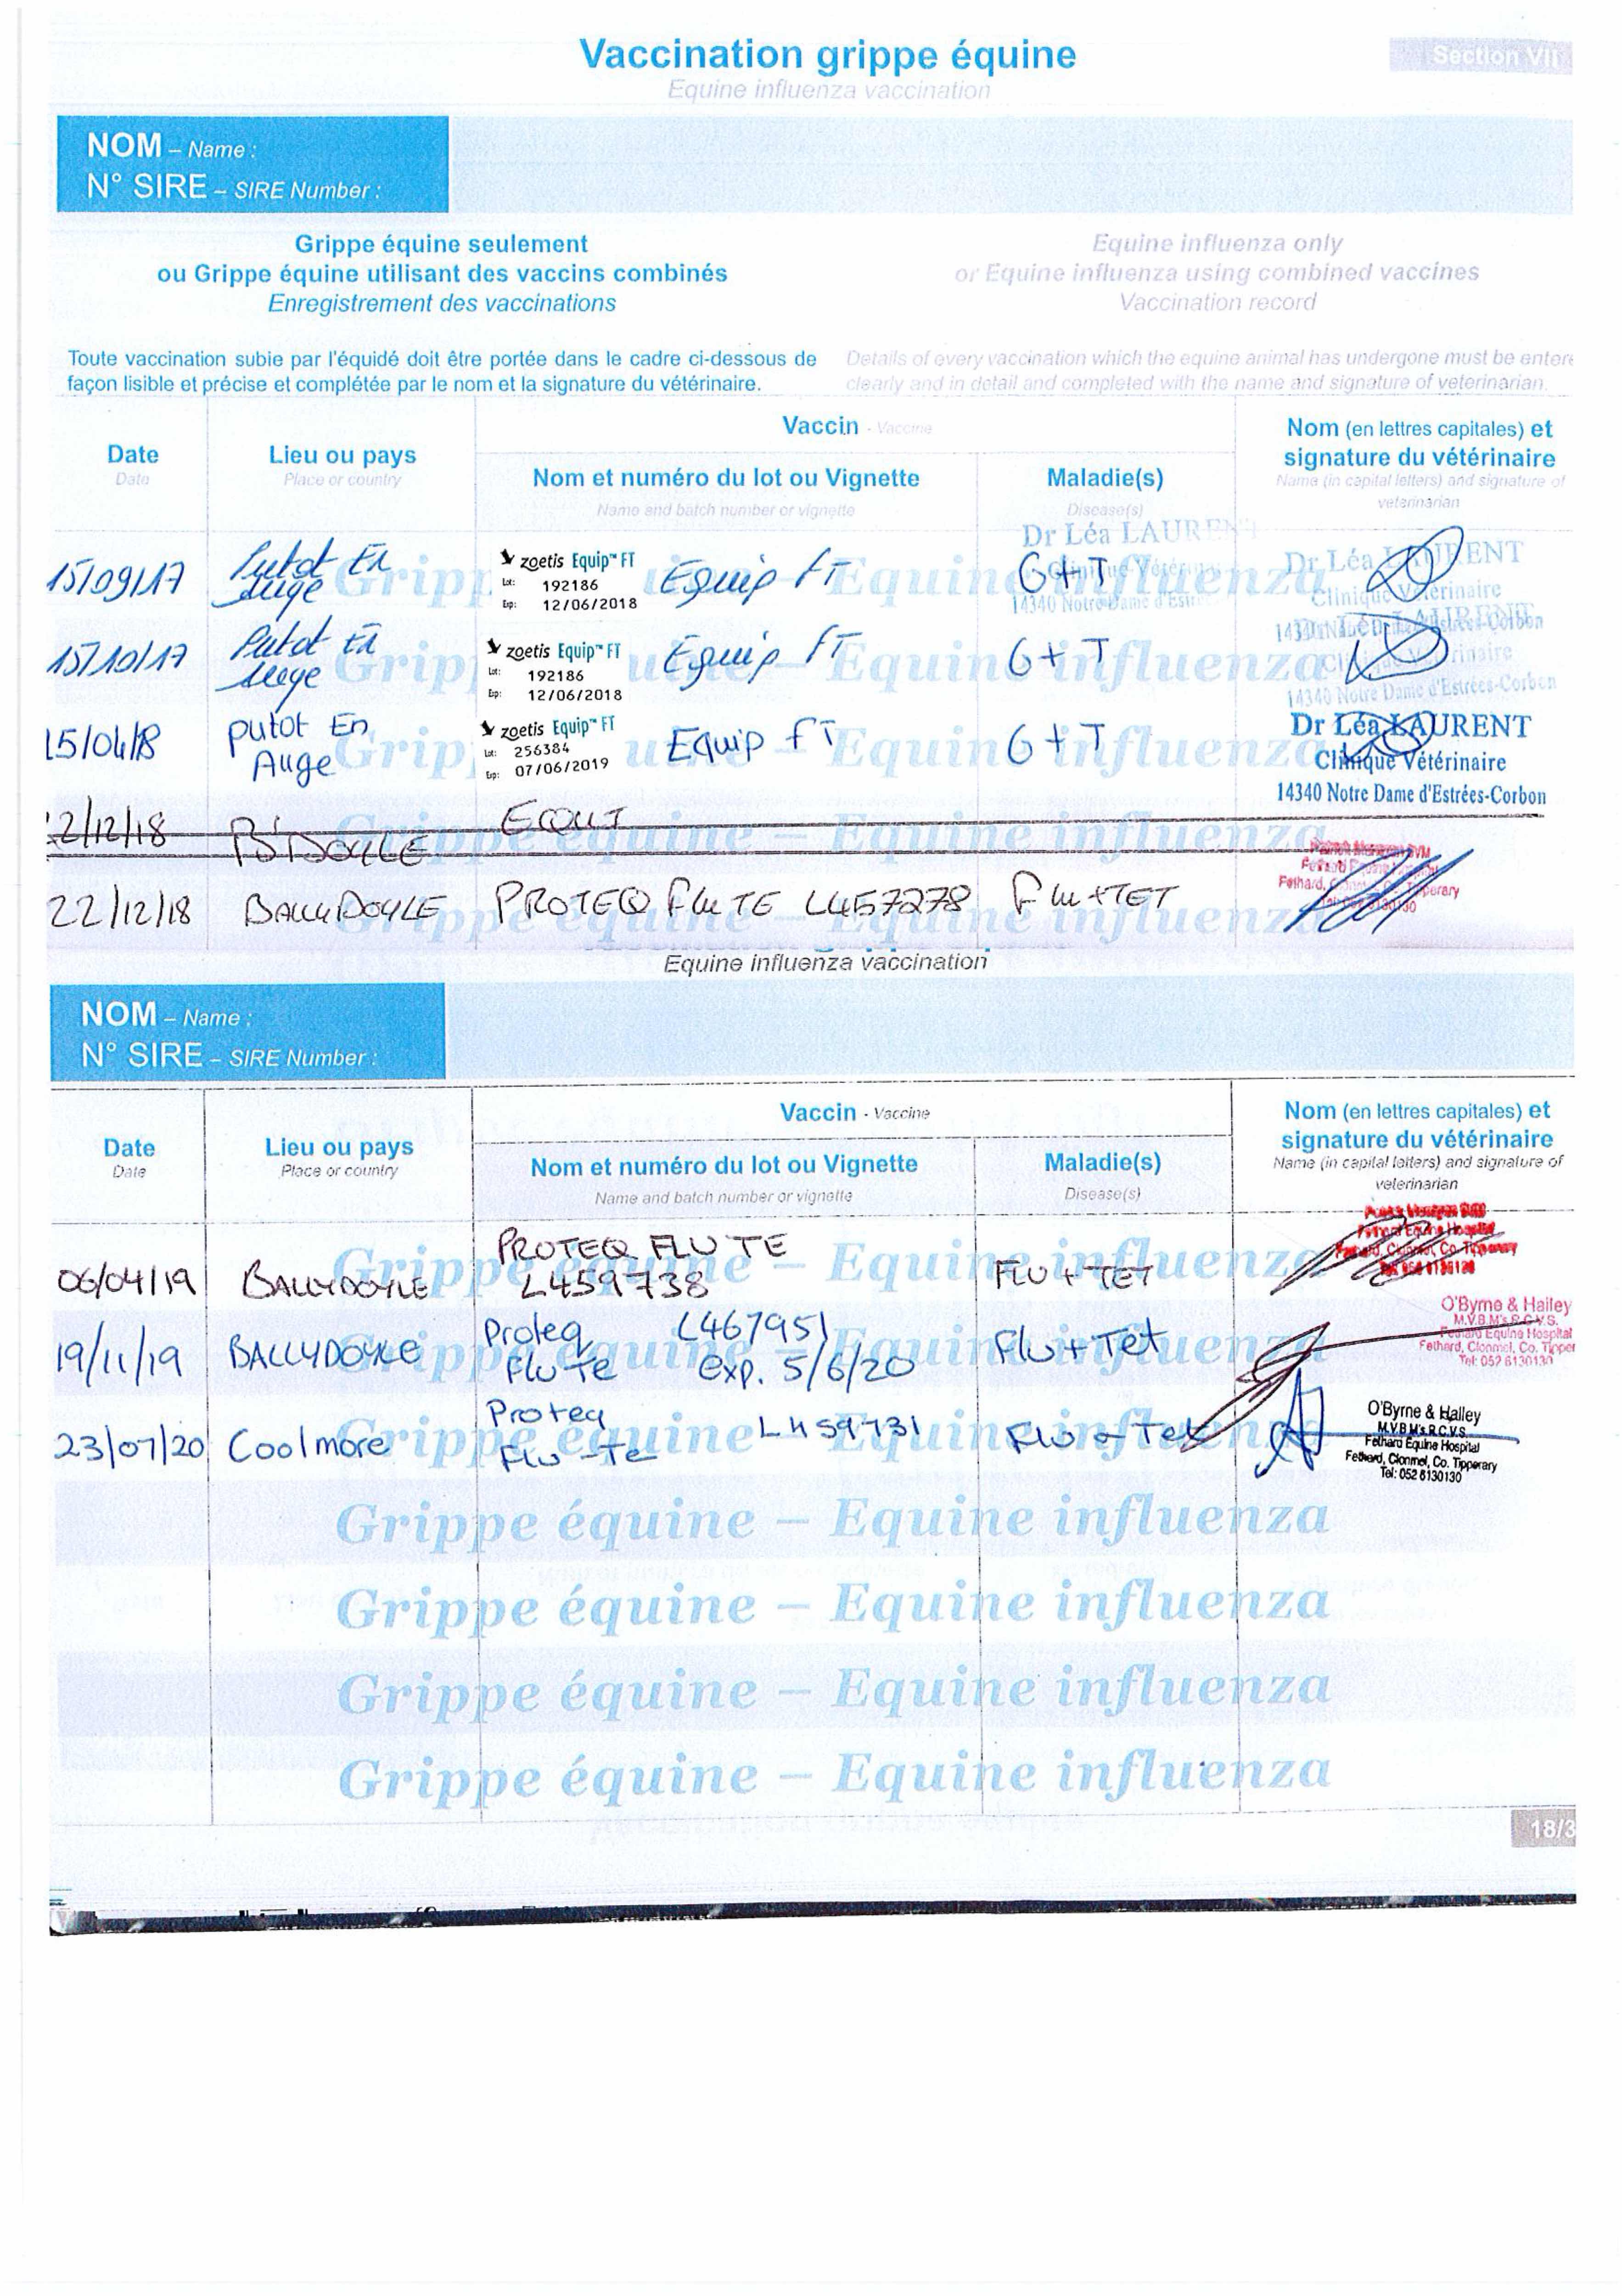 Vaccination grippe équine
Section VII
Equine influenza vaccination
NOM – Name :
N° SIRE – SIRE Number :
Grippe équine seulement
ou Grippe équine utilisant des vaccins combinés
Enregistrement des vaccinations
Equine influenza only
or Equine influenza using combined vaccines
Vaccination record
Toute vaccination subie par l'équidé doit être portée dans le cadre ci-dessous de
façon lisible et précise et complétée par le nom et la signature du vétérinaire.
Details of every vaccination which the equine animal has undergone must be entere
clearly and in detail and completed with the name and signature of veterinarian.
Date
Date
Lieu ou pays
Place or country
Vaccin - Vaccine
Nom et numéro du lot ou Vignette
Name and batch number or vignette
Maladie(s)
Disease(s)
Nom (en lettres capitales) et
signature du vétérinaire
Name (in capital letters) and signature of
veterinarian
Dr Léa LAURENT
14340 Notre Dame d'Estr
15/09/17
Putot En
Auge
zoetis Equip™ FT
Lot: 192186
Exp: 12/06/2018
Equip FT
G+T
Dr Léa LAURENT
Clinique Vétérinaire
15/10/17
Putot En
Auge
zoetis Equip™ FT
Lot: 192186
Exp: 12/06/2018
Equip FT
G+T
LAURENT
Clinique Vétérinaire
14340 Notre Dame d'Estrées-Corbon
15/04/18
Putot En
Auge
zoetis Equip™ FT
Lot: 256384
Exp: 07/06/2019
Equip FT
G+T
Dr Léa LAURENT
Clinique Vétérinaire
14340 Notre Dame d'Estrées-Corbon
2/12/18
B'DOYLE
EQUI
22/12/18
BALLYDOYLE
PROTEQ Flu TE L457278
Flu+TET
Fethard, Clonmel, Co. Tipperary
Grippe équine – Equine influenza
Grippe équine – Equine influenza
Grippe équine – Equine influenza
Grippe équine – Equine influenza
Grippe équine – Equine influenza
Equine influenza vaccination
NOM – Name :
N° SIRE – SIRE Number :
Date
Date
Lieu ou pays
Place or country
Vaccin - Vaccine
Nom et numéro du lot ou Vignette
Name and batch number or vignette
Maladie(s)
Disease(s)
Nom (en lettres capitales) et
signature du vétérinaire
Name (in capital letters) and signature of
veterinarian
06/04/19
BALLYDOYLE
PROTEQ FLU TE
L459738
FLU + TET
Fethard Equine Hospital
Fethard, Clonmel, Co. Tipperary
19/11/19
BALLYDOYLE
Proteq
Flu Te
L467951
exp. 5/6/20
Flu + Tet
O'Byrne & Halley
M.V.B M's R.C.V.S.
Fethard Equine Hospital
Fethard, Clonmel, Co. Tipper
Tel: 052 6130130
23/07/20
Coolmore
Proteq
Flu-Te
L459731
Flu + Tet
O'Byrne & Halley
M.V.B M's R.C.V.S.
Fethard Equine Hospital
Fethard, Clonmel, Co. Tipperary
Tel: 052 6130130
Grippe équine – Equine influenza
Grippe équine – Equine influenza
Grippe équine – Equine influenza
Grippe équine – Equine influenza
Grippe équine – Equine influenza
Grippe équine – Equine influenza
Grippe équine – Equine influenza
18/3